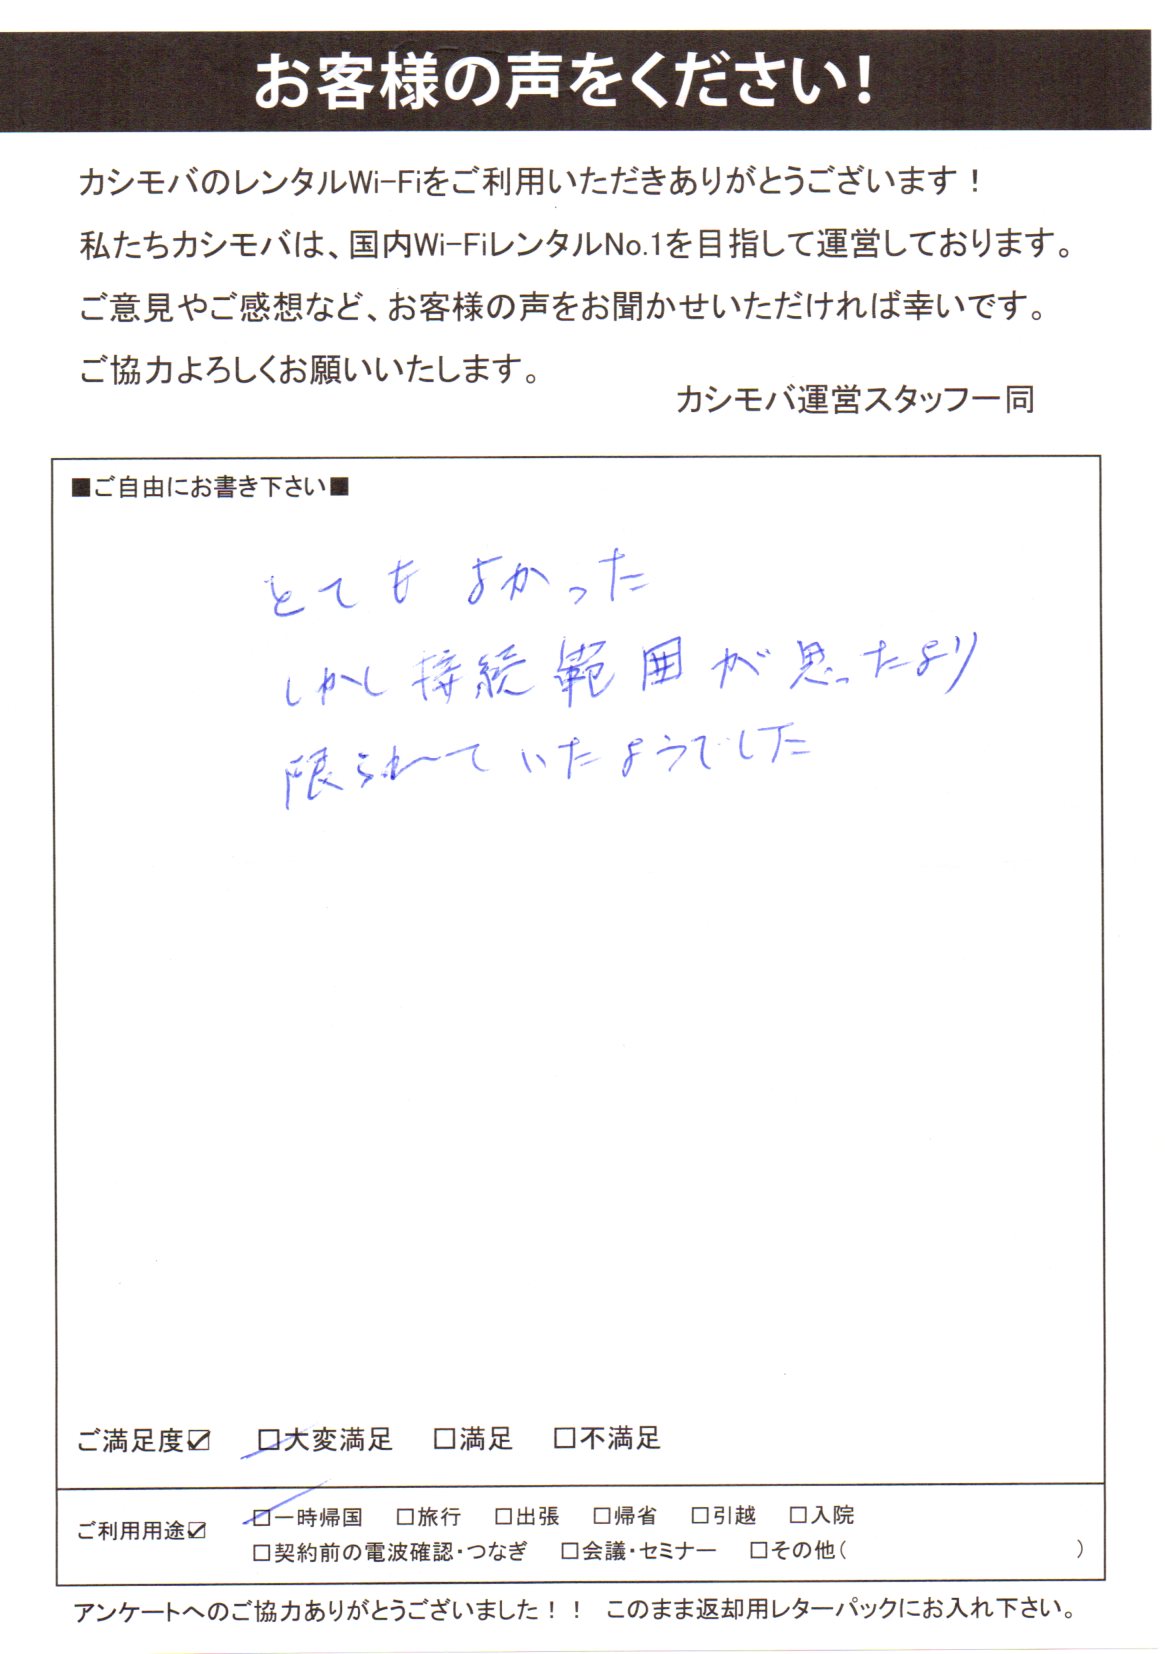 お客様の声をください!
カシモバのレンタルWi-Fiをご利用いただきありがとうございます！
私たちカシモバは、国内Wi-FiレンタルNo.1を目指して運営しております。
ご意見やご感想など、お客様の声をお聞かせいただければ幸いです。
ご協力よろしくお願いいたします。
カシモバ運営スタッフ一同
■ご自由にお書き下さい■
とても よかった
しかし接続範囲が思ったより
限られていたようでした
ご満足度☑ □大変満足 □満足 □不満足
ご利用用途☑ □一時帰国 □旅行 □出張 □帰省 □引越 □入院
□契約前の電波確認・つなぎ □会議・セミナー □その他( )
アンケートへのご協力ありがとうございました！！ このまま返却用レターパックにお入れ下さい。